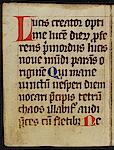 Lucis creator opti
me lucem dierū pfe
rens primordiis lucis
noue mūdi parās o
riginē Qui mane
iunctū vesperi diem
vocari precipis tetrū
chaos illabitᵉ audi
preces cū fletibꝰ Ne